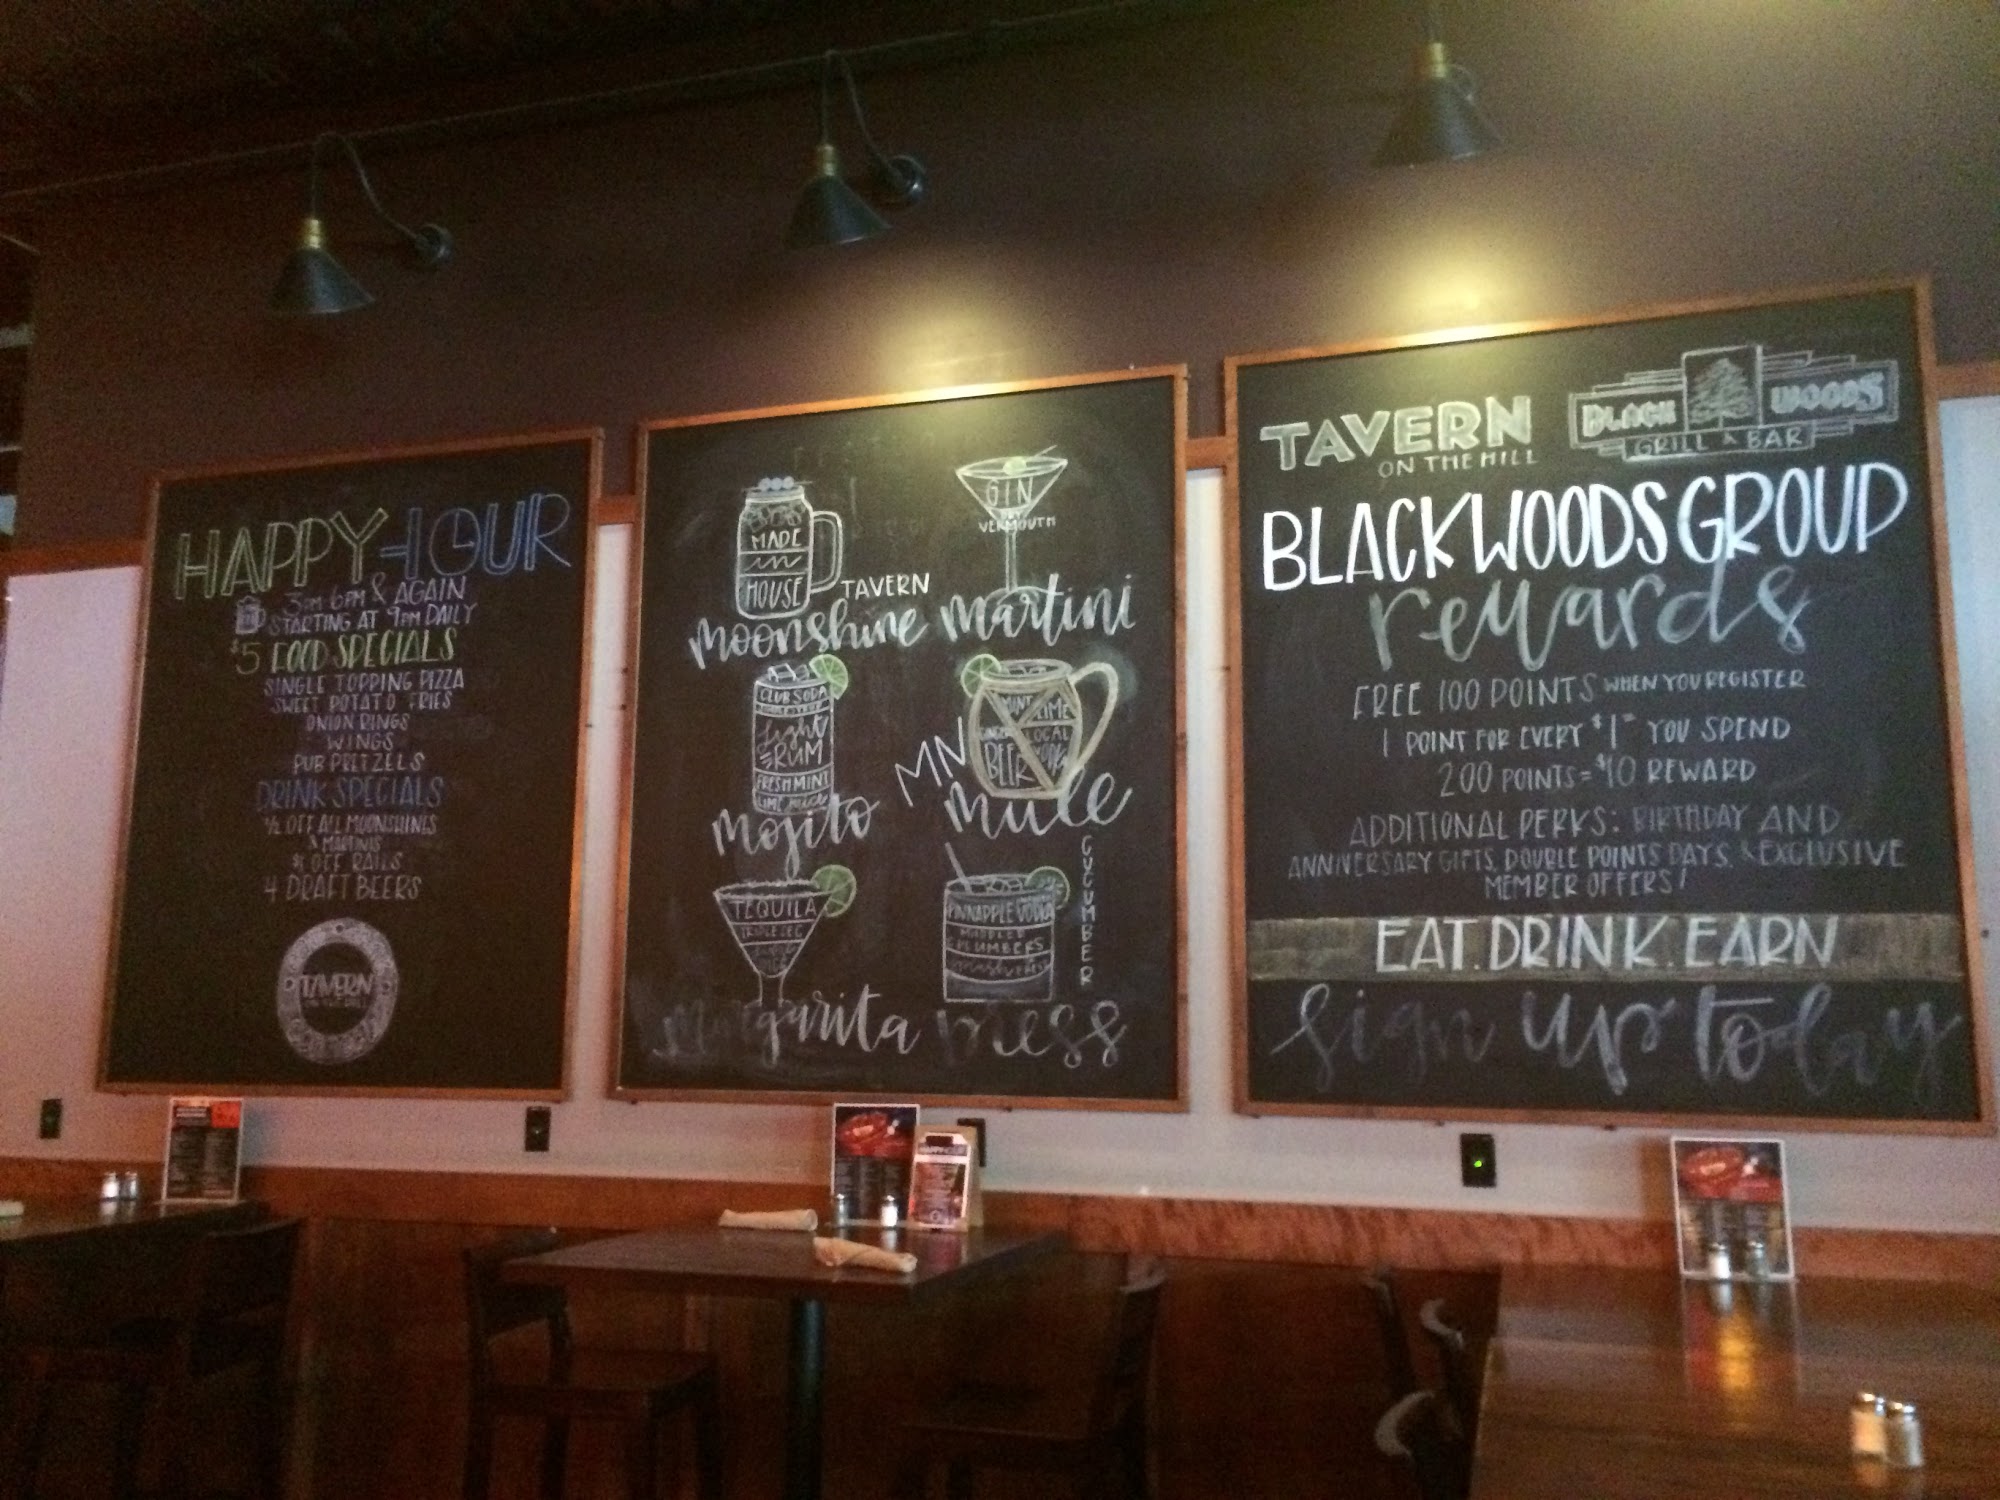 HAPPY HOUR
3PM 6PM & AGAIN
STARTING AT 9PM DAILY
$5 FOOD SPECIALS
SINGLE TOPPING PIZZA
SWEET POTATO FRIES
ONION RINGS
WINGS
PUB PRETZELS
DRINK SPECIALS
1/2 OFF ALL MOONSHINES
& MARTINIS
$1 OFF RAILS
& DRAFT BEERS
TAVERN
ON THE HILL
MADE
in
HOUSE
TAVERN
moonshine
GIN
DRY
VERMOUTH
martini
CLUB SODA
SIMPLE SYRUP
light
RUM
FRESH MINT
LIME JUICE
mojito
MINT LIME
GINGER BEER
LOCAL VODKA
MN
mule
TEQUILA
TRIPLE SEC
margarita
PINNAPPLE VODKA
MUDDLED
CUCUMBERS
CUCUMBER
press
TAVERN
ON THE HILL
BLACK WOODS
GRILL & BAR
BLACKWOODS GROUP
rewards
FREE 100 POINTS WHEN YOU REGISTER
1 POINT FOR EVERY $1 YOU SPEND
200 POINTS = $10 REWARD
ADDITIONAL PERKS: BIRTHDAY AND
ANNIVERSARY GIFTS, DOUBLE POINTS DAYS, & EXCLUSIVE
MEMBER OFFERS!
EAT. DRINK. EARN
sign up today